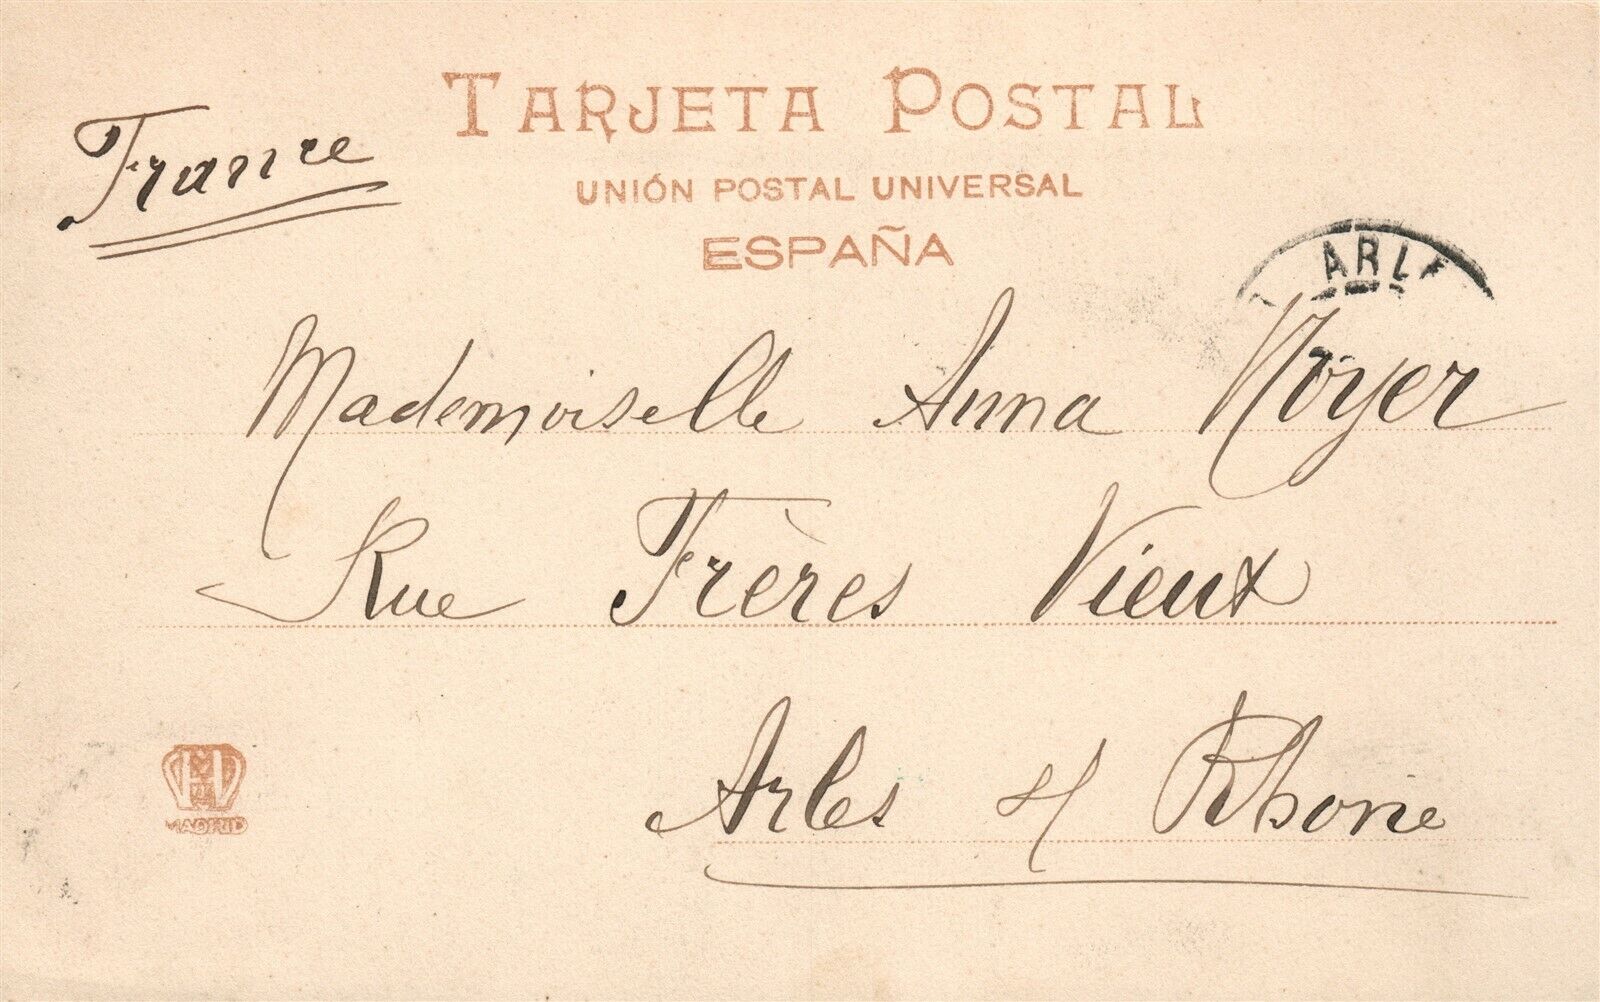 TARJETA POSTAL
UNIÓN POSTAL UNIVERSAL
ESPAÑA
France
ARLE
Mademoiselle Anna Noyer
Rue Frères Vieux
Arles s/ Rhone
H
MADRID